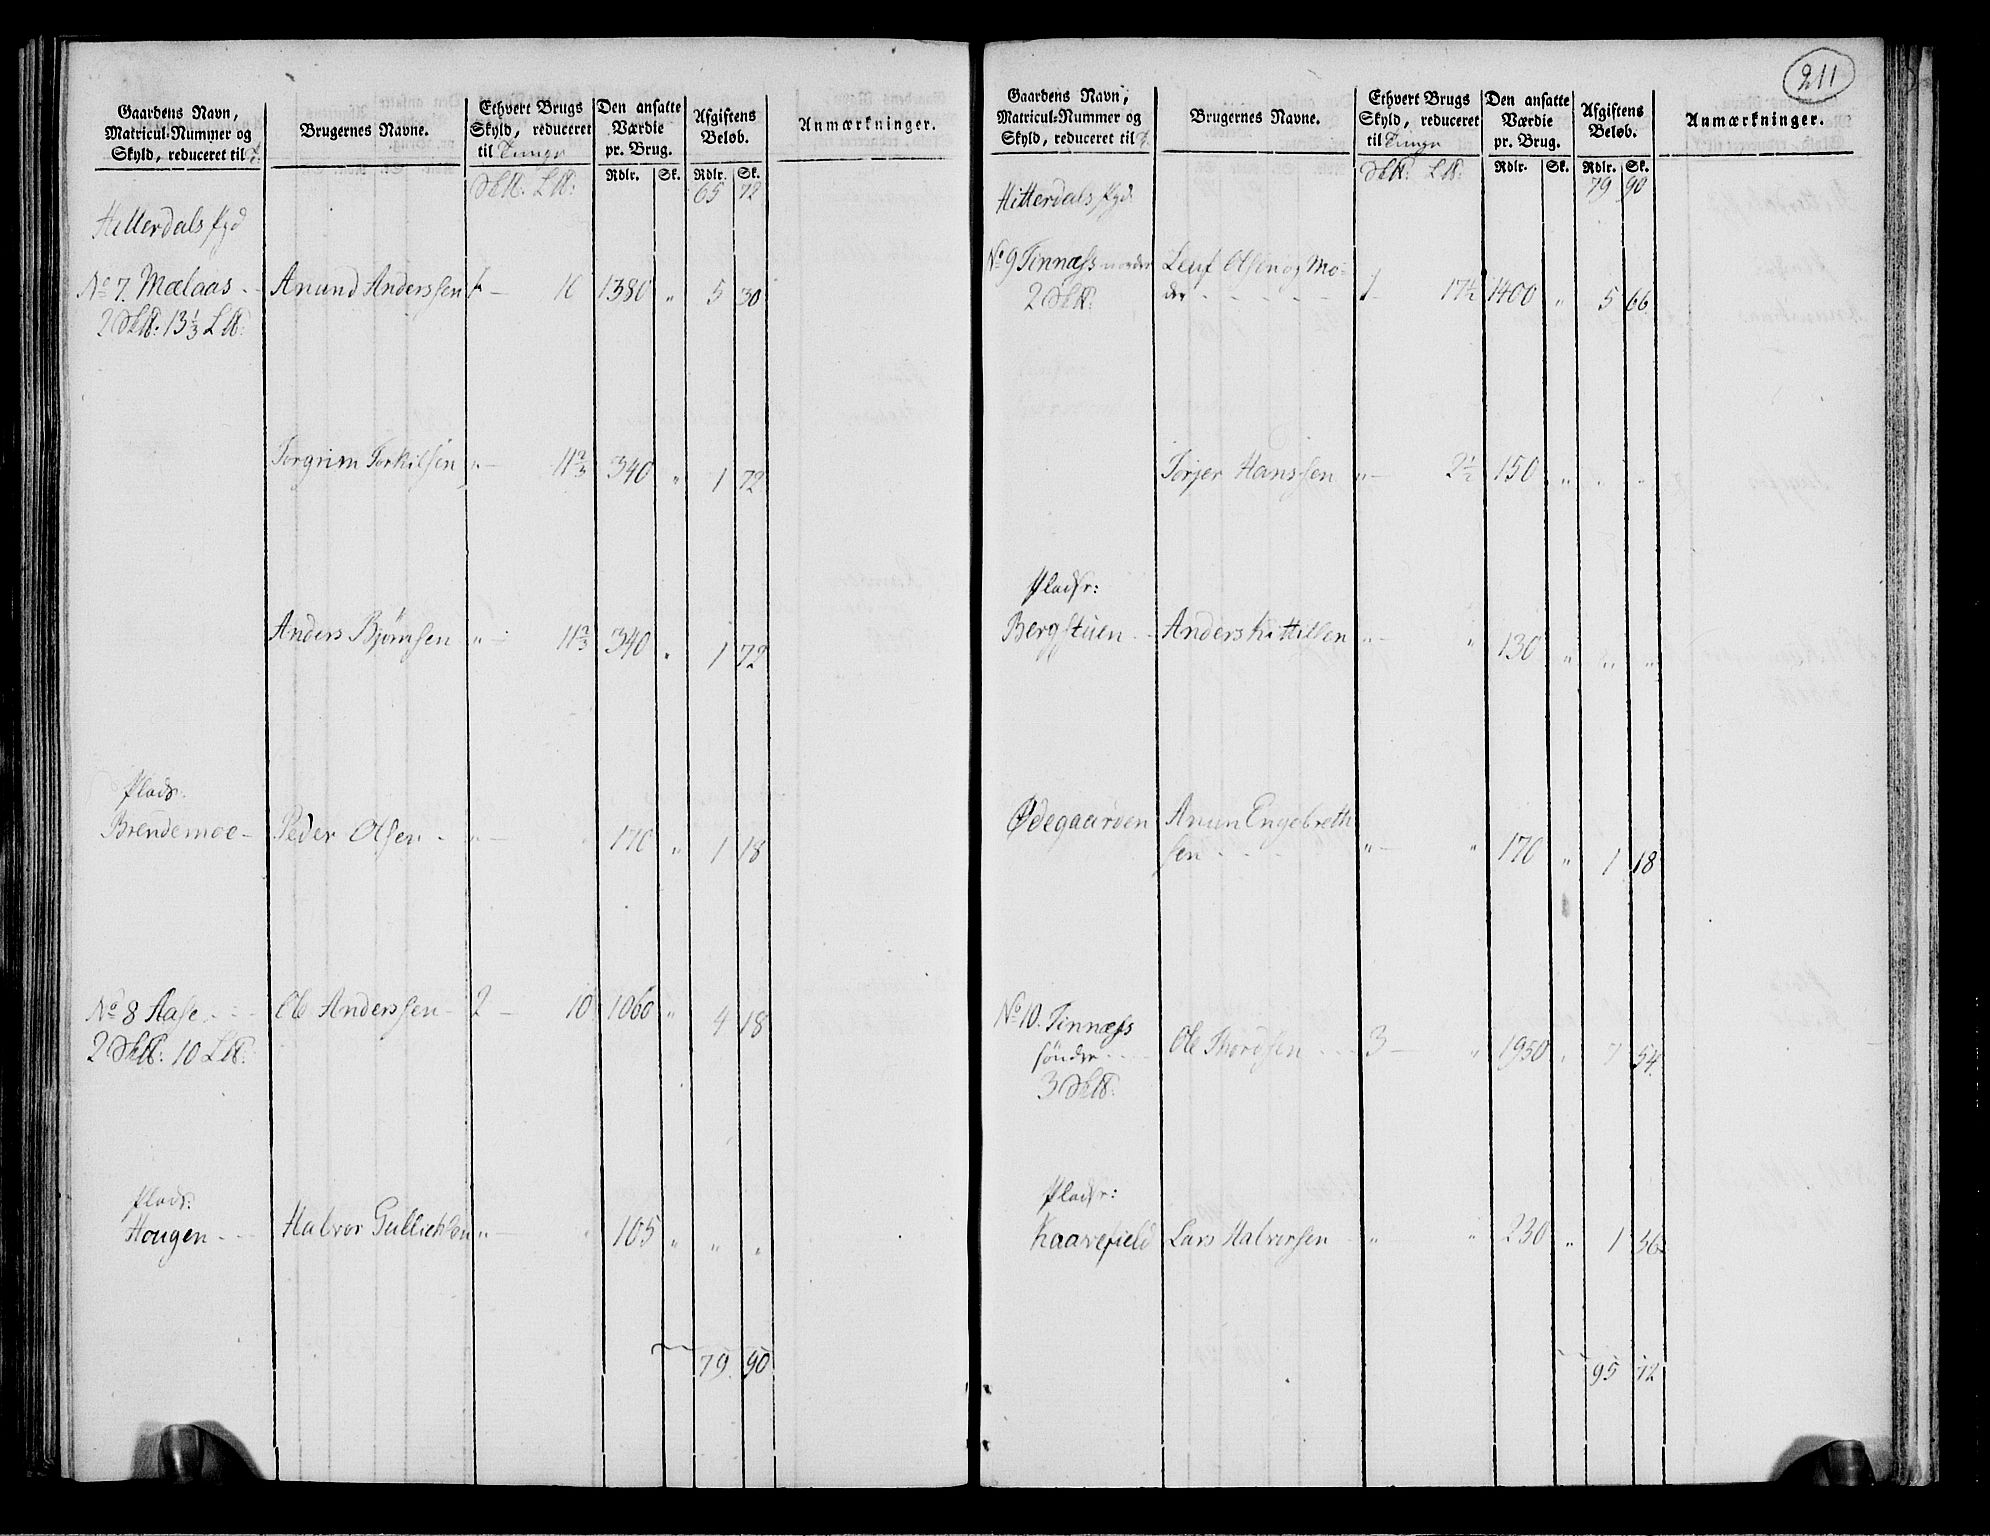 Gaardens Navn,
Matricul-Nummer og
Skyld, reduceret til T.
Brugernes Navne.
Ethvert Brugs
Skyld, reduceret
til Tunge
Den ansatte
Værdie
pr. Brug.
Afgiftens
Beløb.
Anmærkninger.
Rdlr. Sk. Rdlr. Sk.
Sk℔: L℔: 65 72
Hitterdals Pgd
No 7. Mælaas - Anund Anderssen 1 - 16 1380 " 5 30
2 Sk℔: 13 1/3 L℔:
Torgrim Torkilsen " - 11 2/3 340 " 1 72
Anders Bjørnsen " - 11 2/3 340 " 1 72
Plads:
Brendemoe - Peder Olsen - " - " 170 " 1 18
No 8 Aase - Ole Anderssen - 2 - 10 1060 " 4 18
2 Sk℔: 10 L℔:
Plads:
Hougen - Halvor Gullichsen " - " 105 " " "
79 90
211
Gaardens Navn,
Matricul-Nummer og
Skyld, reduceret til T.
Brugernes Navne.
Ethvert Brugs
Skyld, reduceret
til Tunge
Den ansatte
Værdie
pr. Brug.
Afgiftens
Beløb.
Anmærkninger.
Rdlr. Sk. Rdlr. Sk.
Sk℔: L℔: 79 90
Hitterdals Pgd
No 9 Tinnæss nordre Leuf Olsen og Mo-
2 Sk℔: der - 1 - 17 1/2 1400 " 5 66
Torjer Hanssen " - 2 1/2 150 " " "
Pladsr:
Bergstuen - Anders Kittilsen " - " 130 " " "
Ødegaarden Anun Engebreth
sen - " - " 170 " 1 18
No 10. Tinnæss
søndre - Ole Thordsen - 3 - " 1950 " 7 54
3 Sk℔:
Pladsr:
Kaavefield Lars Halvorsen - " " 230 " 1 36
95 72